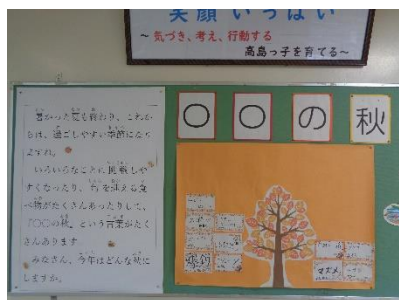 笑顔いっぱい
～気づき、考え、行動する
高島っ子を育てる～
〇〇の秋
暑かった夏も終わり、これか
らは、過ごしやすい季節になり
ますね。
いろいろなことに挑戦しや
すくなったり、旬を迎える食
べ物がたくさんあったりして、
「〇〇の秋」という言葉がたく
さんあります。
みなさん、今年はどんな秋に
しますか。